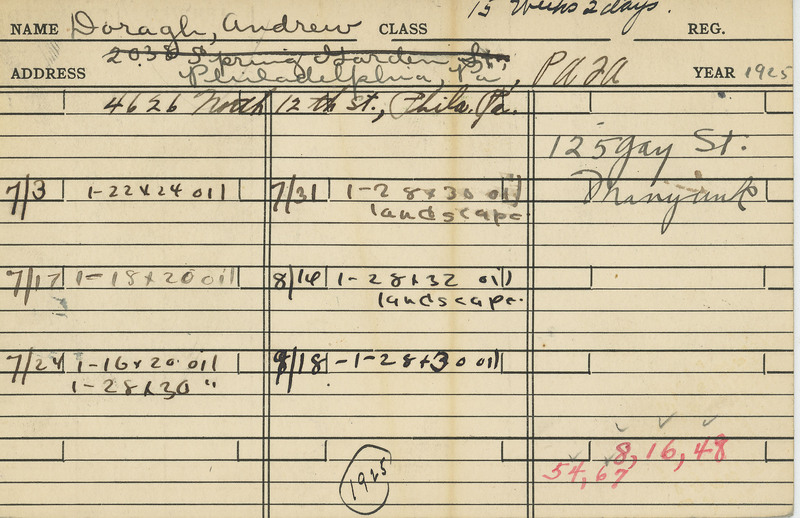 15 Weeks 2 days.
NAME Doragh, Andrew CLASS REG.
2038 Spring Garden St.
ADDRESS Philadelphia, Pa, PAFA YEAR 1925
4626 North 12th St., Phila. Pa.
125 Gay St.
Manyunk
7/3 1-22x24 oil 7/31 1-28x30 oil
landscape
7/17 1-18x20 oil 8/14 1-28x32 oil
landscape
7/24 1-16x20 oil 9/18 -1-28x30 oil
1-28x30 "
8, 16, 48
54, 67
1925